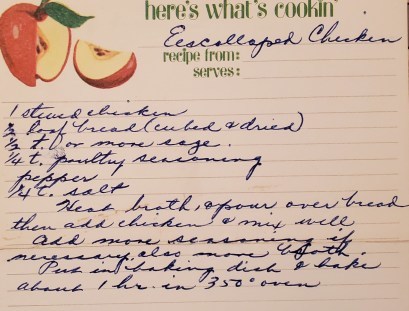 here's what's cookin'
Eescalloped Chicken
recipe from:
serves:
1 stewed chicken
½ loaf bread (cubed & dried)
½ t. or more sage.
¼ t. poultry seasoning
pepper
¼ t. salt
Heat broth, & pour over bread
then add chicken & mix well
Add more seasoning if
necessary, also more broth.
Put in baking dish & bake
about 1 hr. in 350° oven